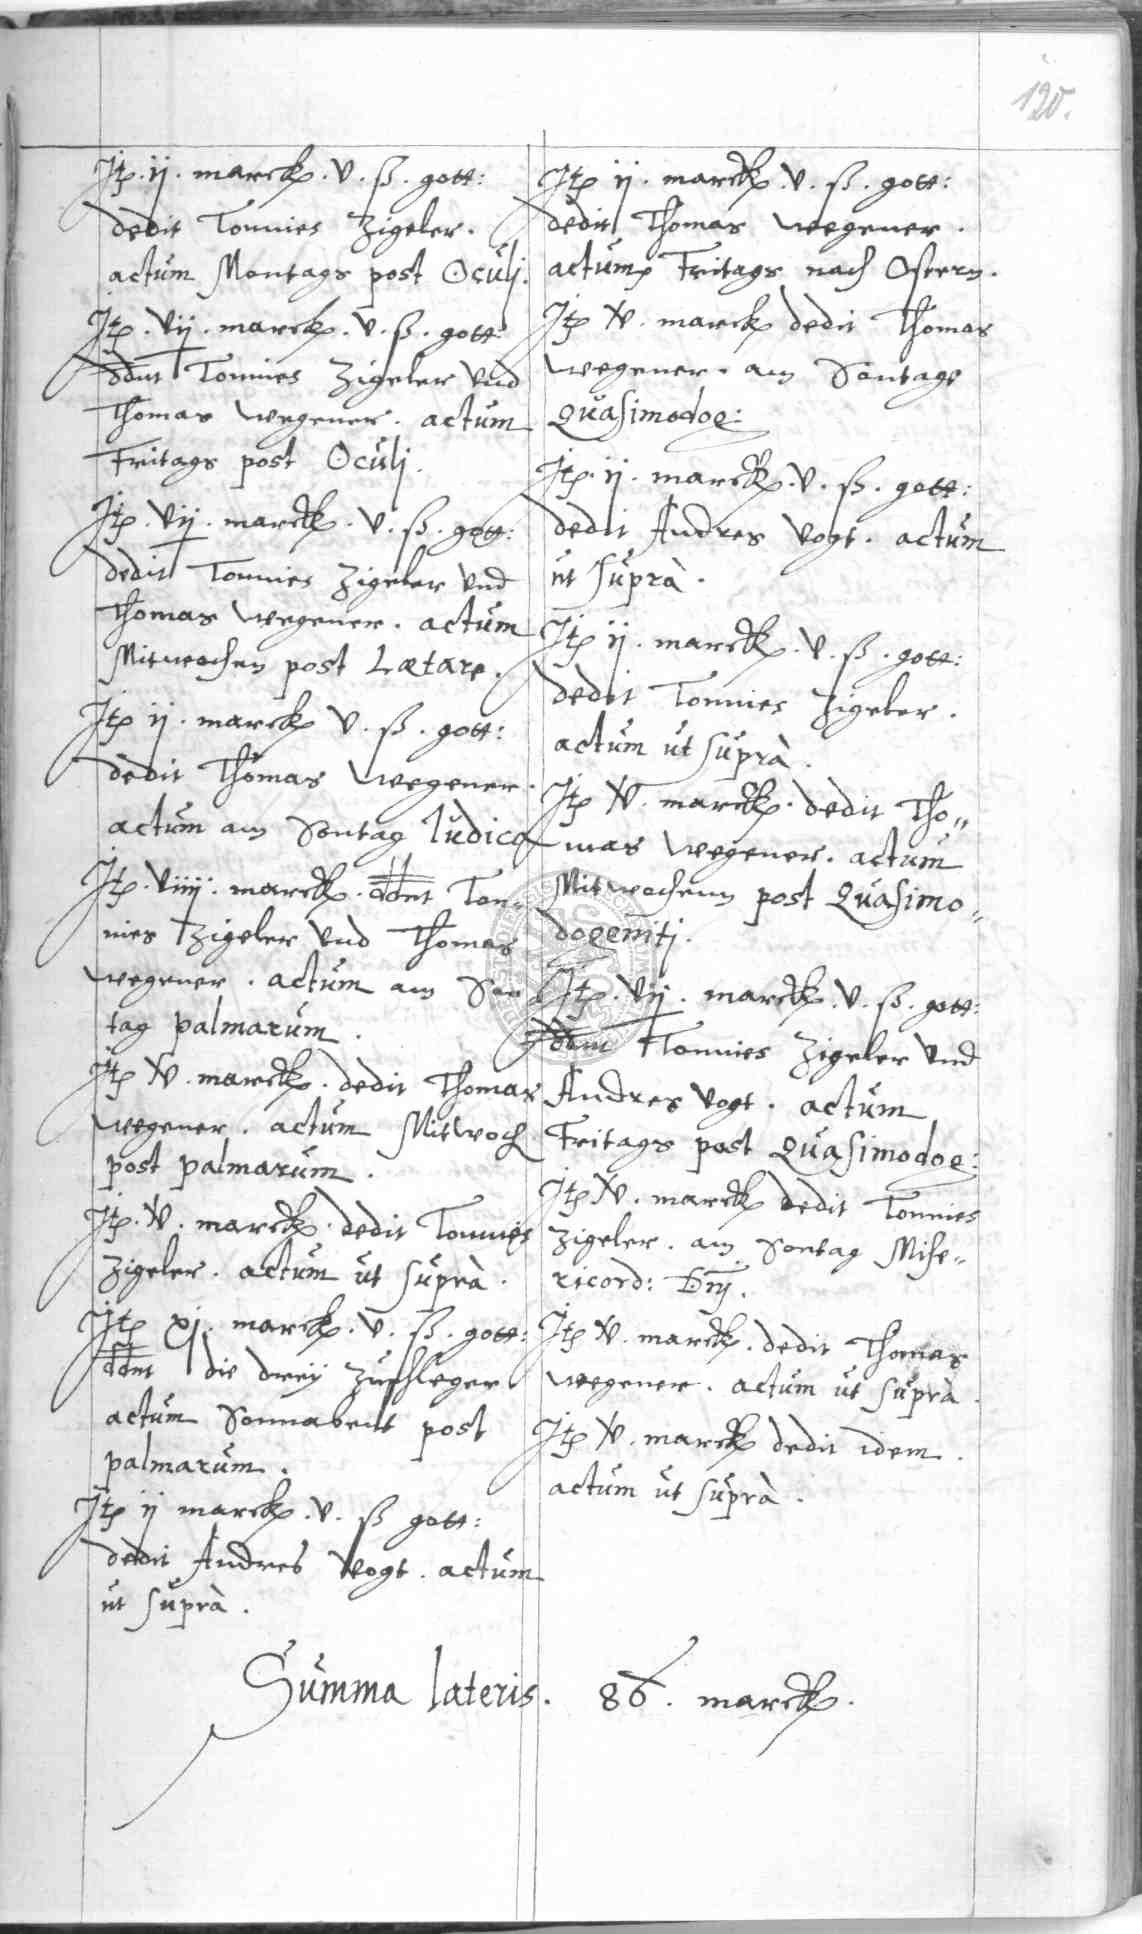 120.
Jtẽ. ij. marck. v. ß. gott:
dedit Tonnies Zigeler.
actum Montags post Oculj.
Jtẽ. vij. marck. v. ß. gott
ddnt Tonnies Zigeler vnd
Thomas wegener. actum
Fritags post Oculj.
Jtẽ. vij. marck. v. ß. gott:
dedit Tonnies Zigeler vnd
Thomas wegener. actum
Mitwochen post Lætare.
Jtẽ ij. marck v. ß. gott:
dedit Thomas wegener.
actum am Sontag Iudica
Jtẽ. viiij. marck. ddnt Ton-
nies Zigeler vnd Thomas
wegener. actum am Son
tag palmarum.
Jtẽ v. marck. dedit Thomas
wegener. actum Mitwoch
post palmarum.
Jtẽ. v. marck. dedit Tonnies
Zigeler. actum ut suprà.
Jtẽ xj. marck. v. ß. gott:
ddnt die dreÿ Zuschleger
actum Sonnabent post
palmarum.
Jtẽ ij marck. v. ß gott:
dedit Andres Vogt. actum
ut suprà.
Jtẽ ij. marck. v. ß. gott:
dedit Thomas wegener.
actum Fritags nach Ostern.
Jtẽ v. marck dedit Thomas
wegener. am Sontags
Quasimodog:
Jtẽ. ij. marck. v. ß. gott:
dedit Andres Vogt. actum
ut suprà.
Jtẽ ij. marck. v. ß. gott:
dedit Tonnies Zigeler.
actum ut suprà.
Jtẽ v. marck. dedit Tho"
mas wegener. actum
Mitwochenn post Quasimo"
dogenitj.
Jtẽ. vij. marck. v. ß. gott:
ddnt Tonnies Zigeler vnd
Andres Vogt. actum
Fritags post Quasimodog:
Jtẽ v. marck dedit Tonnies
Zigeler. am Sontag Mise"
ricord: Dnj.
Jtẽ v. marck. dedit Thomas
wegener. actum ut suprà.
Jtẽ v. marck dedit idem.
actum ut suprà.
Summa lateris. 86. marck.